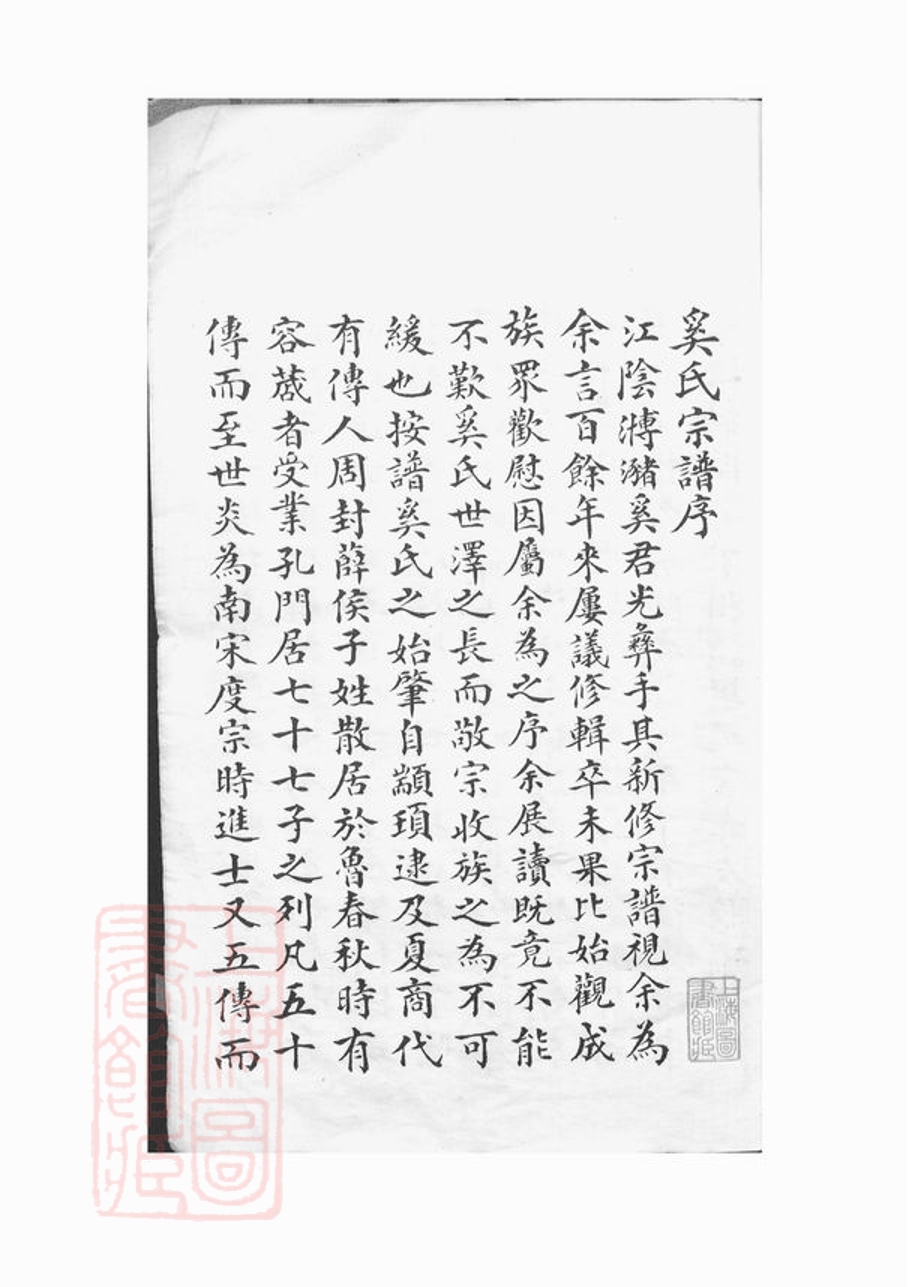 奚氏宗譜序
江陰溥瀦奚君光彝手其新修宗譜視余為
余言百餘年來屢議修輯卒未果比始觀成
族眾歡慰因屬余為之序余展讀既竟不能
不歎奚氏世澤之長而敬宗收族之為不可
緩也按譜奚氏之始肇自顓頊逮及夏商代
有傳人周封薛侯子姓散居於魯春秋時有
容蒧者受業孔門居七十七子之列凡五十
傳而至世炎為南宋度宗時進士又五傳而
上海圖
書館藏
上海圖
書館藏